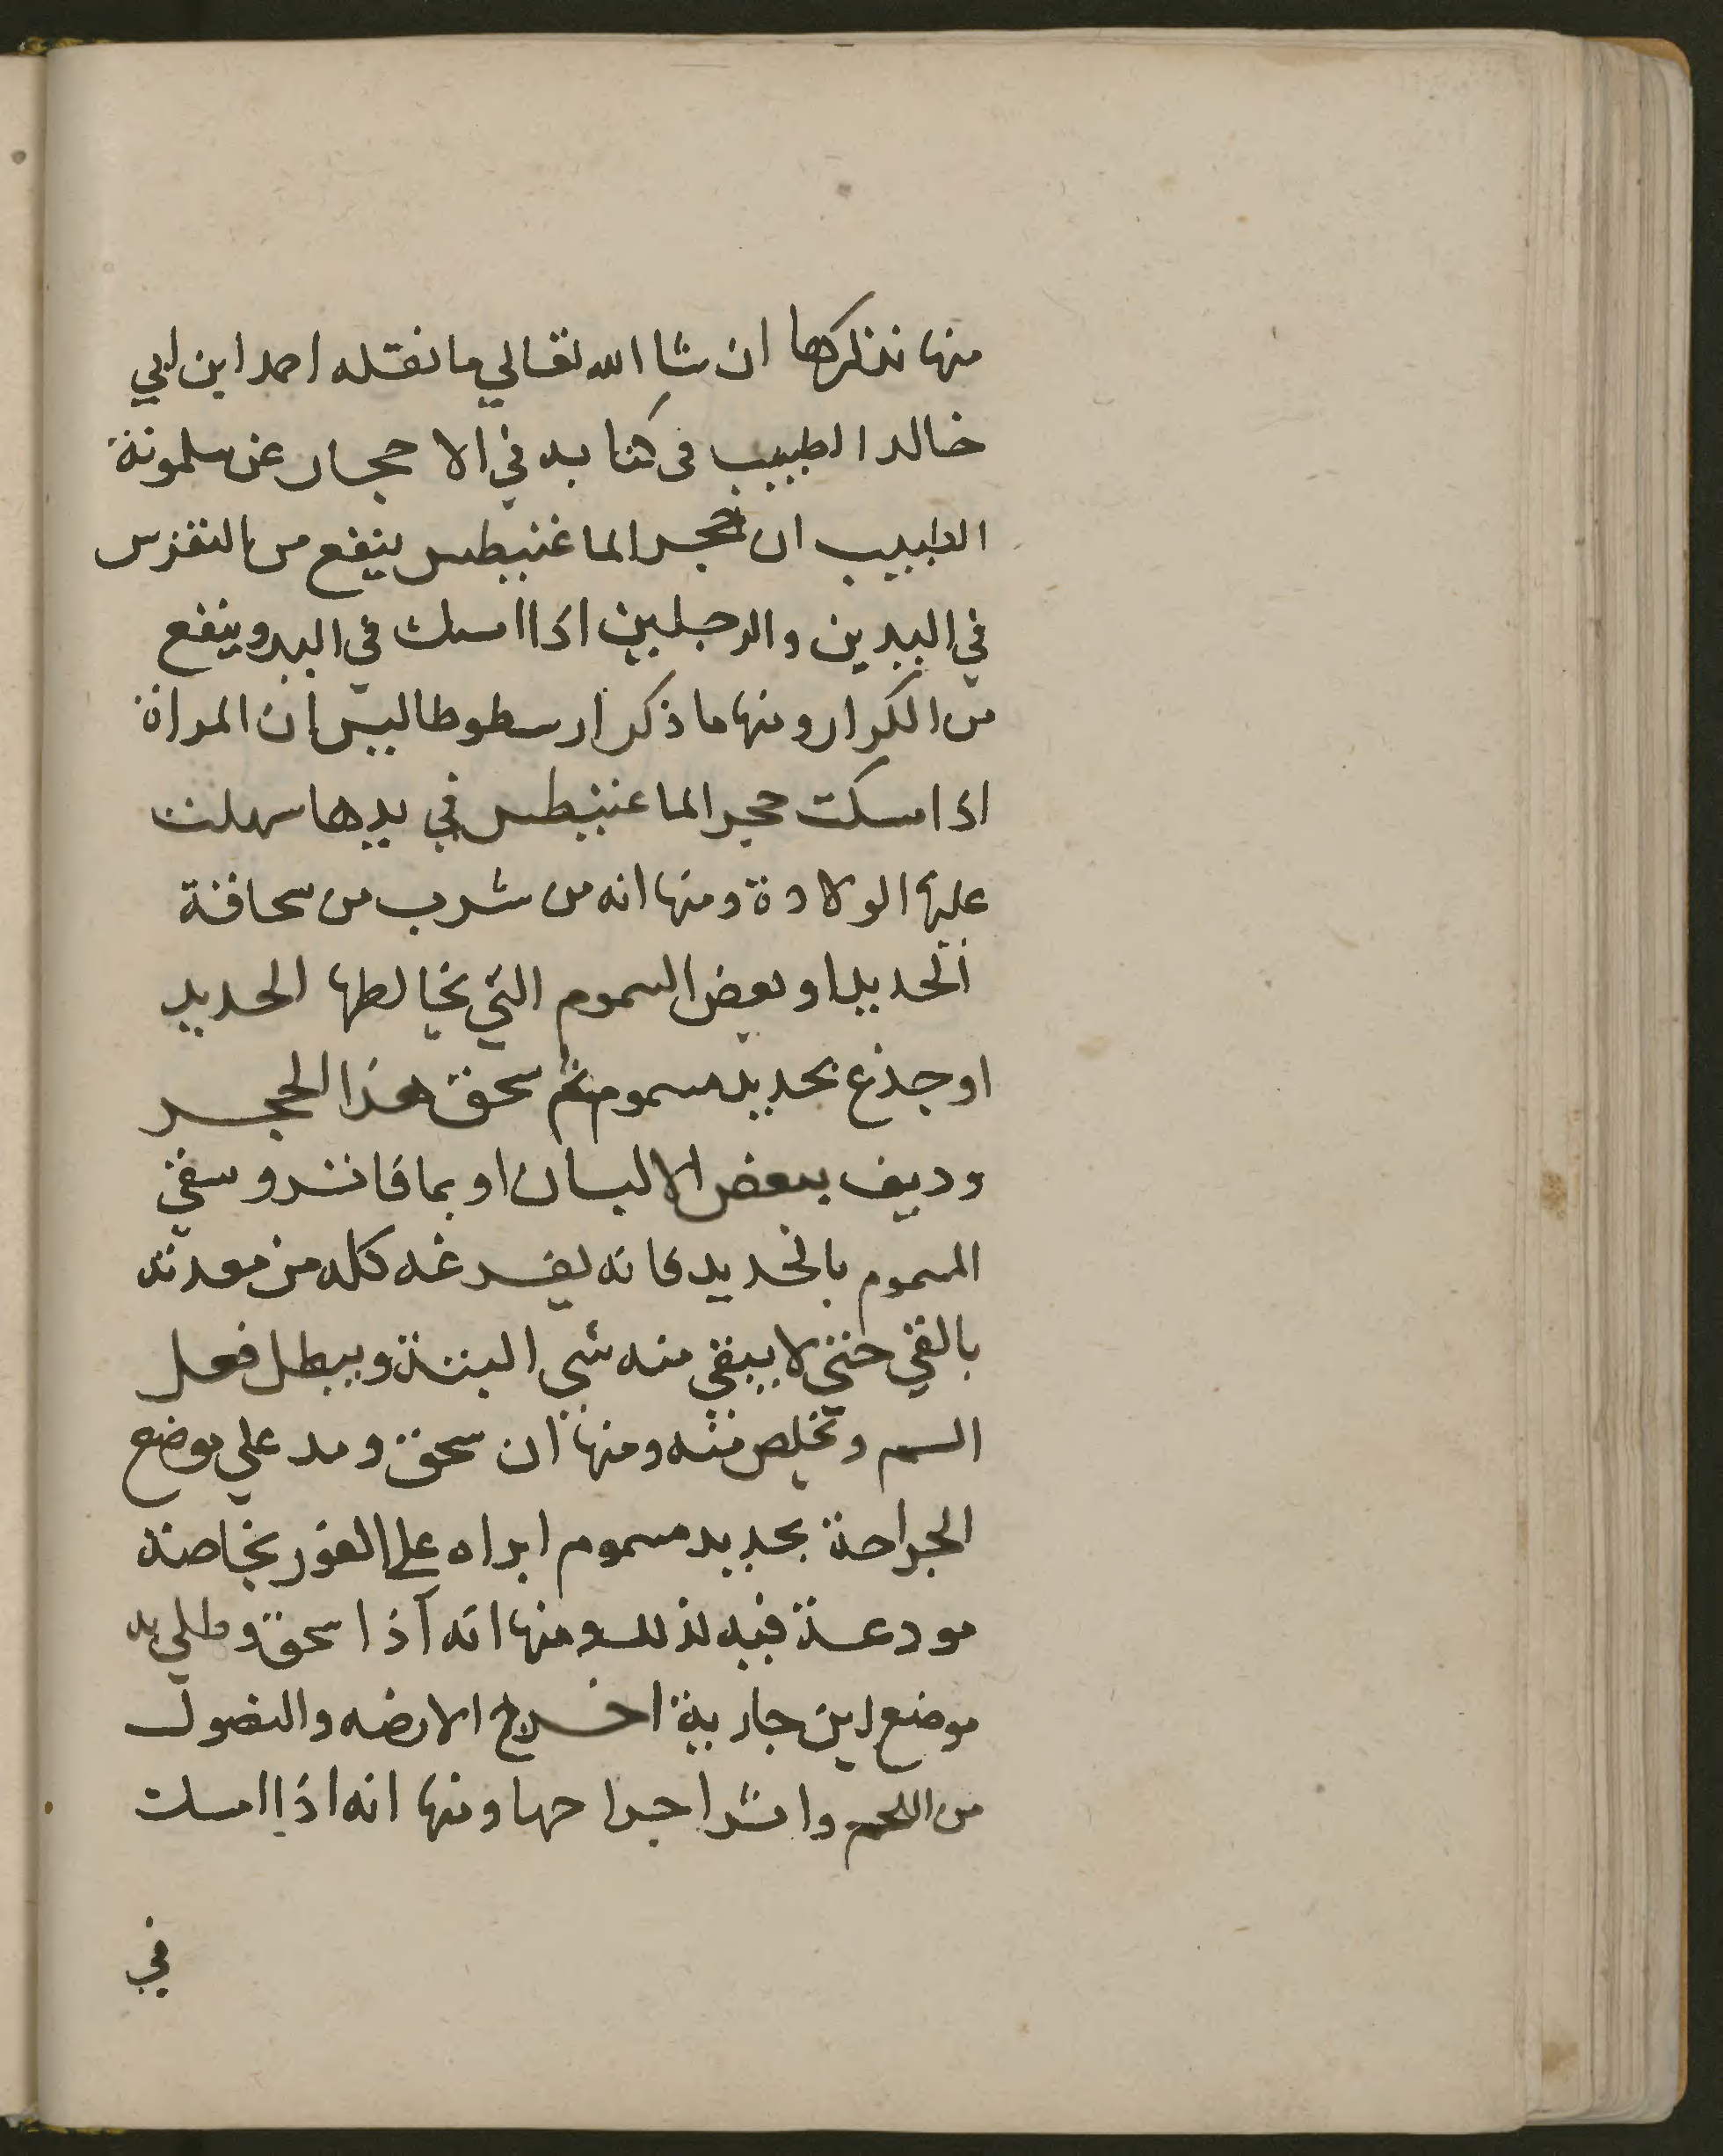 منها نذكرها ان شا الله تعالي ما نقله احمد ابن ابي
خالد الطبيب فى كتابه في الاحجار عن سلمونة
الطبيب ان حجر الماغنيطس ينفع من النقرس
في اليدين والرجلين اذا امسك في اليد وينفع
من الكرار ومنها ما ذكر ارسطوطاليس ان المراة
اذا مسكت حجر الماغنيطس في يدها سهلت
عليها الولادة ومنها انه من شرب من سحاقة
الحديد او بعض السموم التي يخالطها الحديد
او جذع بحديد مسموم ثم سحق هذا الحجر
وديف ببعض الالبان او بما فاتر وسقي
المسموم بالحديد فانه يفرغه كله من معدته
بالقي حتي لا يبقي منه شي البتة ويبطل فعل
السم وتخلص منه ومنها ان سحق ومد علي موضع
الجراحة بحديد مسموم ابراه علي الفور بخاصة
مودعة فيه لذلك ومنها انه اذا سحق وطلي به
موضع اين جارية اخرج الارضه والنصول
من اللحم وابرا جراحها ومنها انه اذا امسكت
في